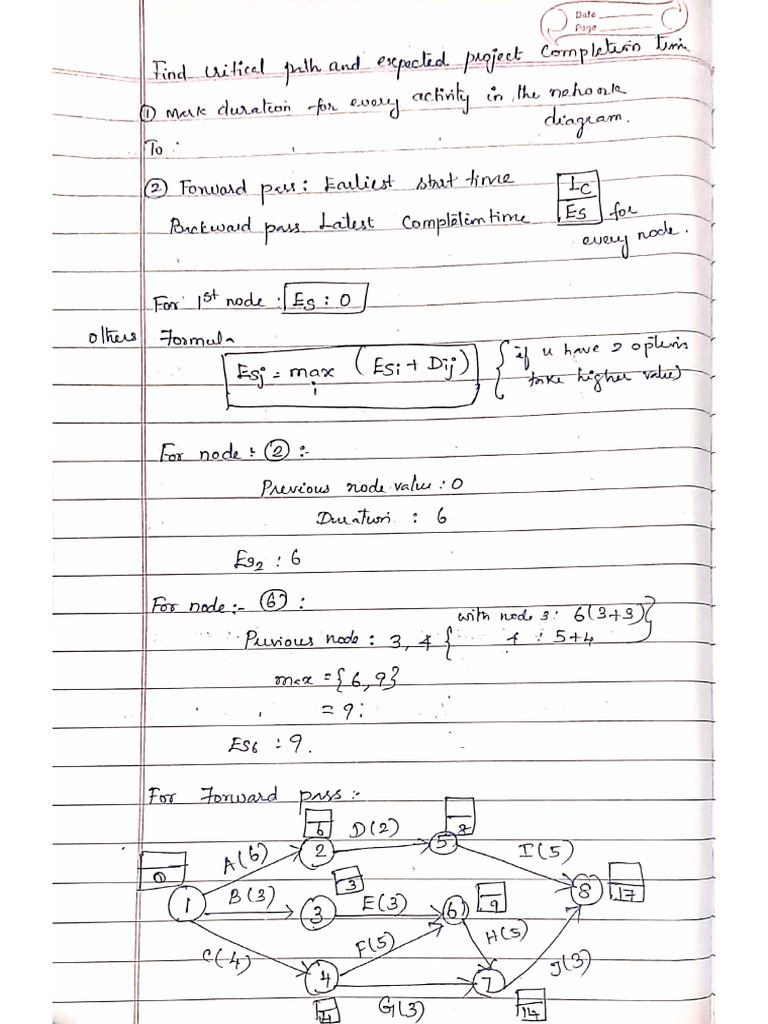 Date
Page
Find critical path and expected project completion time
① Mark duration for every activity in the network
diagram.
To :
② Forward pass: Earliest start time
Backward pass Latest Completion time
Lc
Es
for
every node.
For 1st node : Es : 0
others Formula
Esj = max (Esi + Dij)
i
{ if u have 2 options
take higher value)
For node : ② :-
Previous node value : 0
Duration : 6
Es2 : 6
For node :- ⑥ :
with node 3: 6(3+3)
Previous node : 3, 4 { 4 : 5+4 }
max = {6, 9}
= 9:
Es6 : 9.
For Forward pass :-
6
D(2)
8
A(6)
2
5
I(5)
0
B(3)
3
E(3)
9
8
17
1
3
6
H(5)
C(4)
F(5)
J(3)
4
7
4
G(3)
14